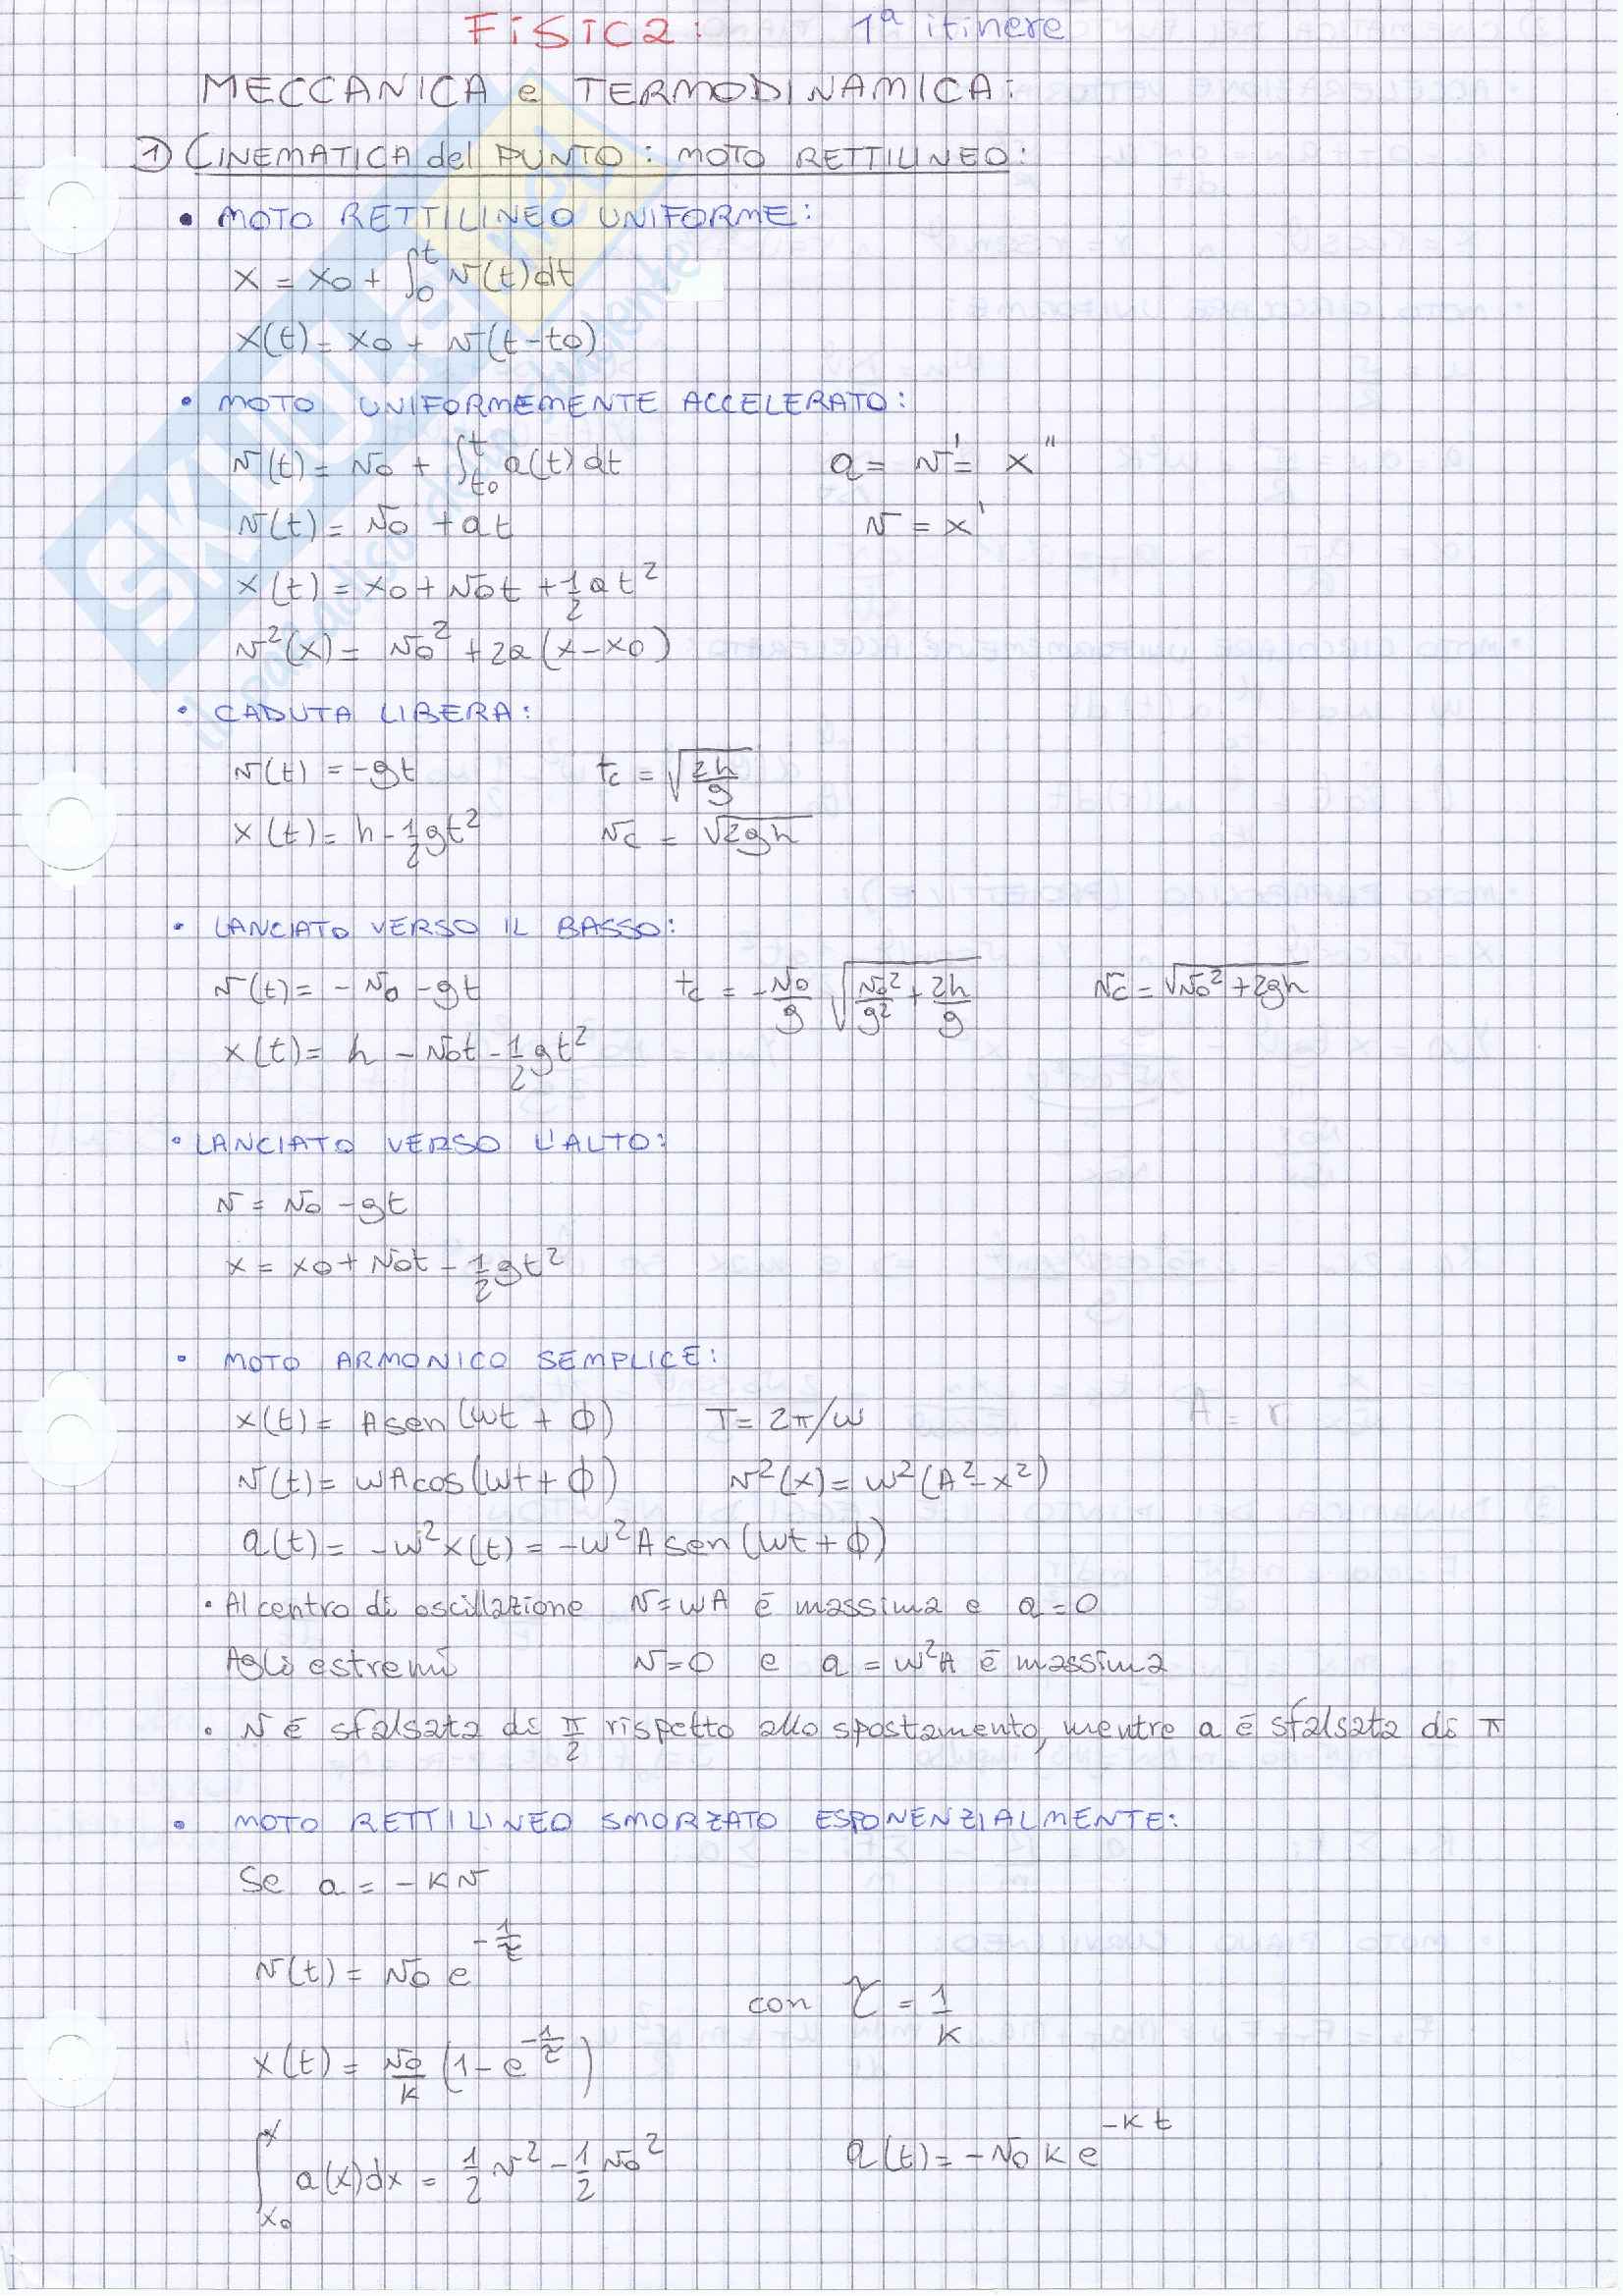 Fisica: 1ª itinere
MECCANICA e TERMODINAMICA:
1) CINEMATICA del PUNTO: MOTO RETTILINEO:
• MOTO RETTILINEO UNIFORME:
x = x0 + ∫₀ᵗ v(t)dt
x(t) = x0 + v(t-t0)
• MOTO UNIFORMEMENTE ACCELERATO:
v(t) = v0 + ∫ₜ₀ᵗ a(t)dt a = v' = x''
v(t) = v0 + at v = x'
x(t) = x0 + v0t + 1/2 at²
v²(x) = v0² + 2a(x-x0)
• CADUTA LIBERA:
v(t) = -gt tc = √(2h/g)
x(t) = h - 1/2 gt² vc = √(2gh)
• LANCIATO VERSO IL BASSO:
v(t) = - v0 - gt tc = -v0/g √(v0²/g² + 2h/g) vc = √(v0² + 2gh)
x(t) = h - v0t - 1/2 gt²
• LANCIATO VERSO L'ALTO:
v = v0 - gt
x = x0 + v0t - 1/2 gt²
• MOTO ARMONICO SEMPLICE:
x(t) = A sen(wt + ϕ) T = 2π/w A = r
v(t) = wA cos(wt + ϕ) v²(x) = w²(A² - x²)
a(t) = -w²x(t) = -w²A sen(wt + ϕ)
• Al centro di oscillazione v = wA è massima e a = 0
Agli estremi v = 0 e a = w²A è massima
• v è sfalsata di π/2 rispetto allo spostamento, mentre a è sfalsata di π
• MOTO RETTILINEO SMORZATO ESPONENZIALMENTE:
Se a = -kv
v(t) = v0 e^(-1/τ)
con τ = 1/k
x(t) = v0/k (1 - e^(-1/τ))
∫ₓ₀ˣ a(x)dx = 1/2 v² - 1/2 v0² a(t) = -v0 k e^(-kt)
SKUOLA.net
il paradiso dello studente